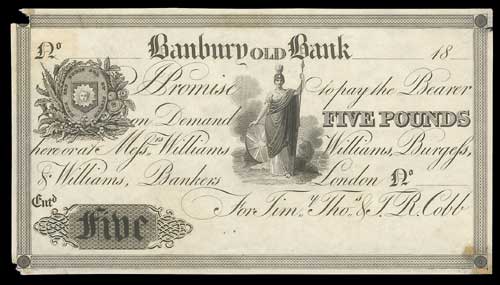 Nº Banbury OLD Bank 18
I Promise to pay the Bearer
on Demand FIVE POUNDS
here or at Messrs Williams Williams, Burgess,
& Williams, Bankers London Nº
Entd For Timy Thos & T. R. Cobb
Five